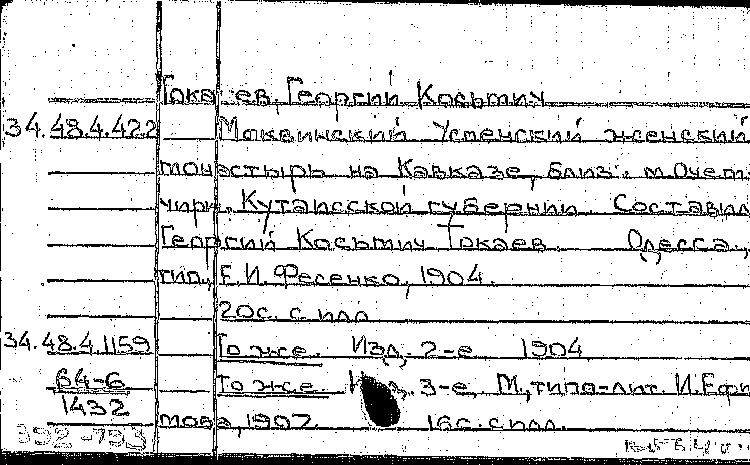 Токаев, Георгий Косьмич
34.48.4.422 Моквинский Успенский женский
монастырь на Кавказе, близ. м. Очем-
чири, Кутаисской губернии. Составил
Георгий Косьмич Токаев. Одесса,
тип. Е.И. Фесенко, 1904.
20с. с илл
34.48.4.1159 То же. Изд. 2-е 1904
64-6 То же. Изд. 3-е, М., типо-лит. И. Ефи
1432
мова, 1907. 16с. с илл.
392-793